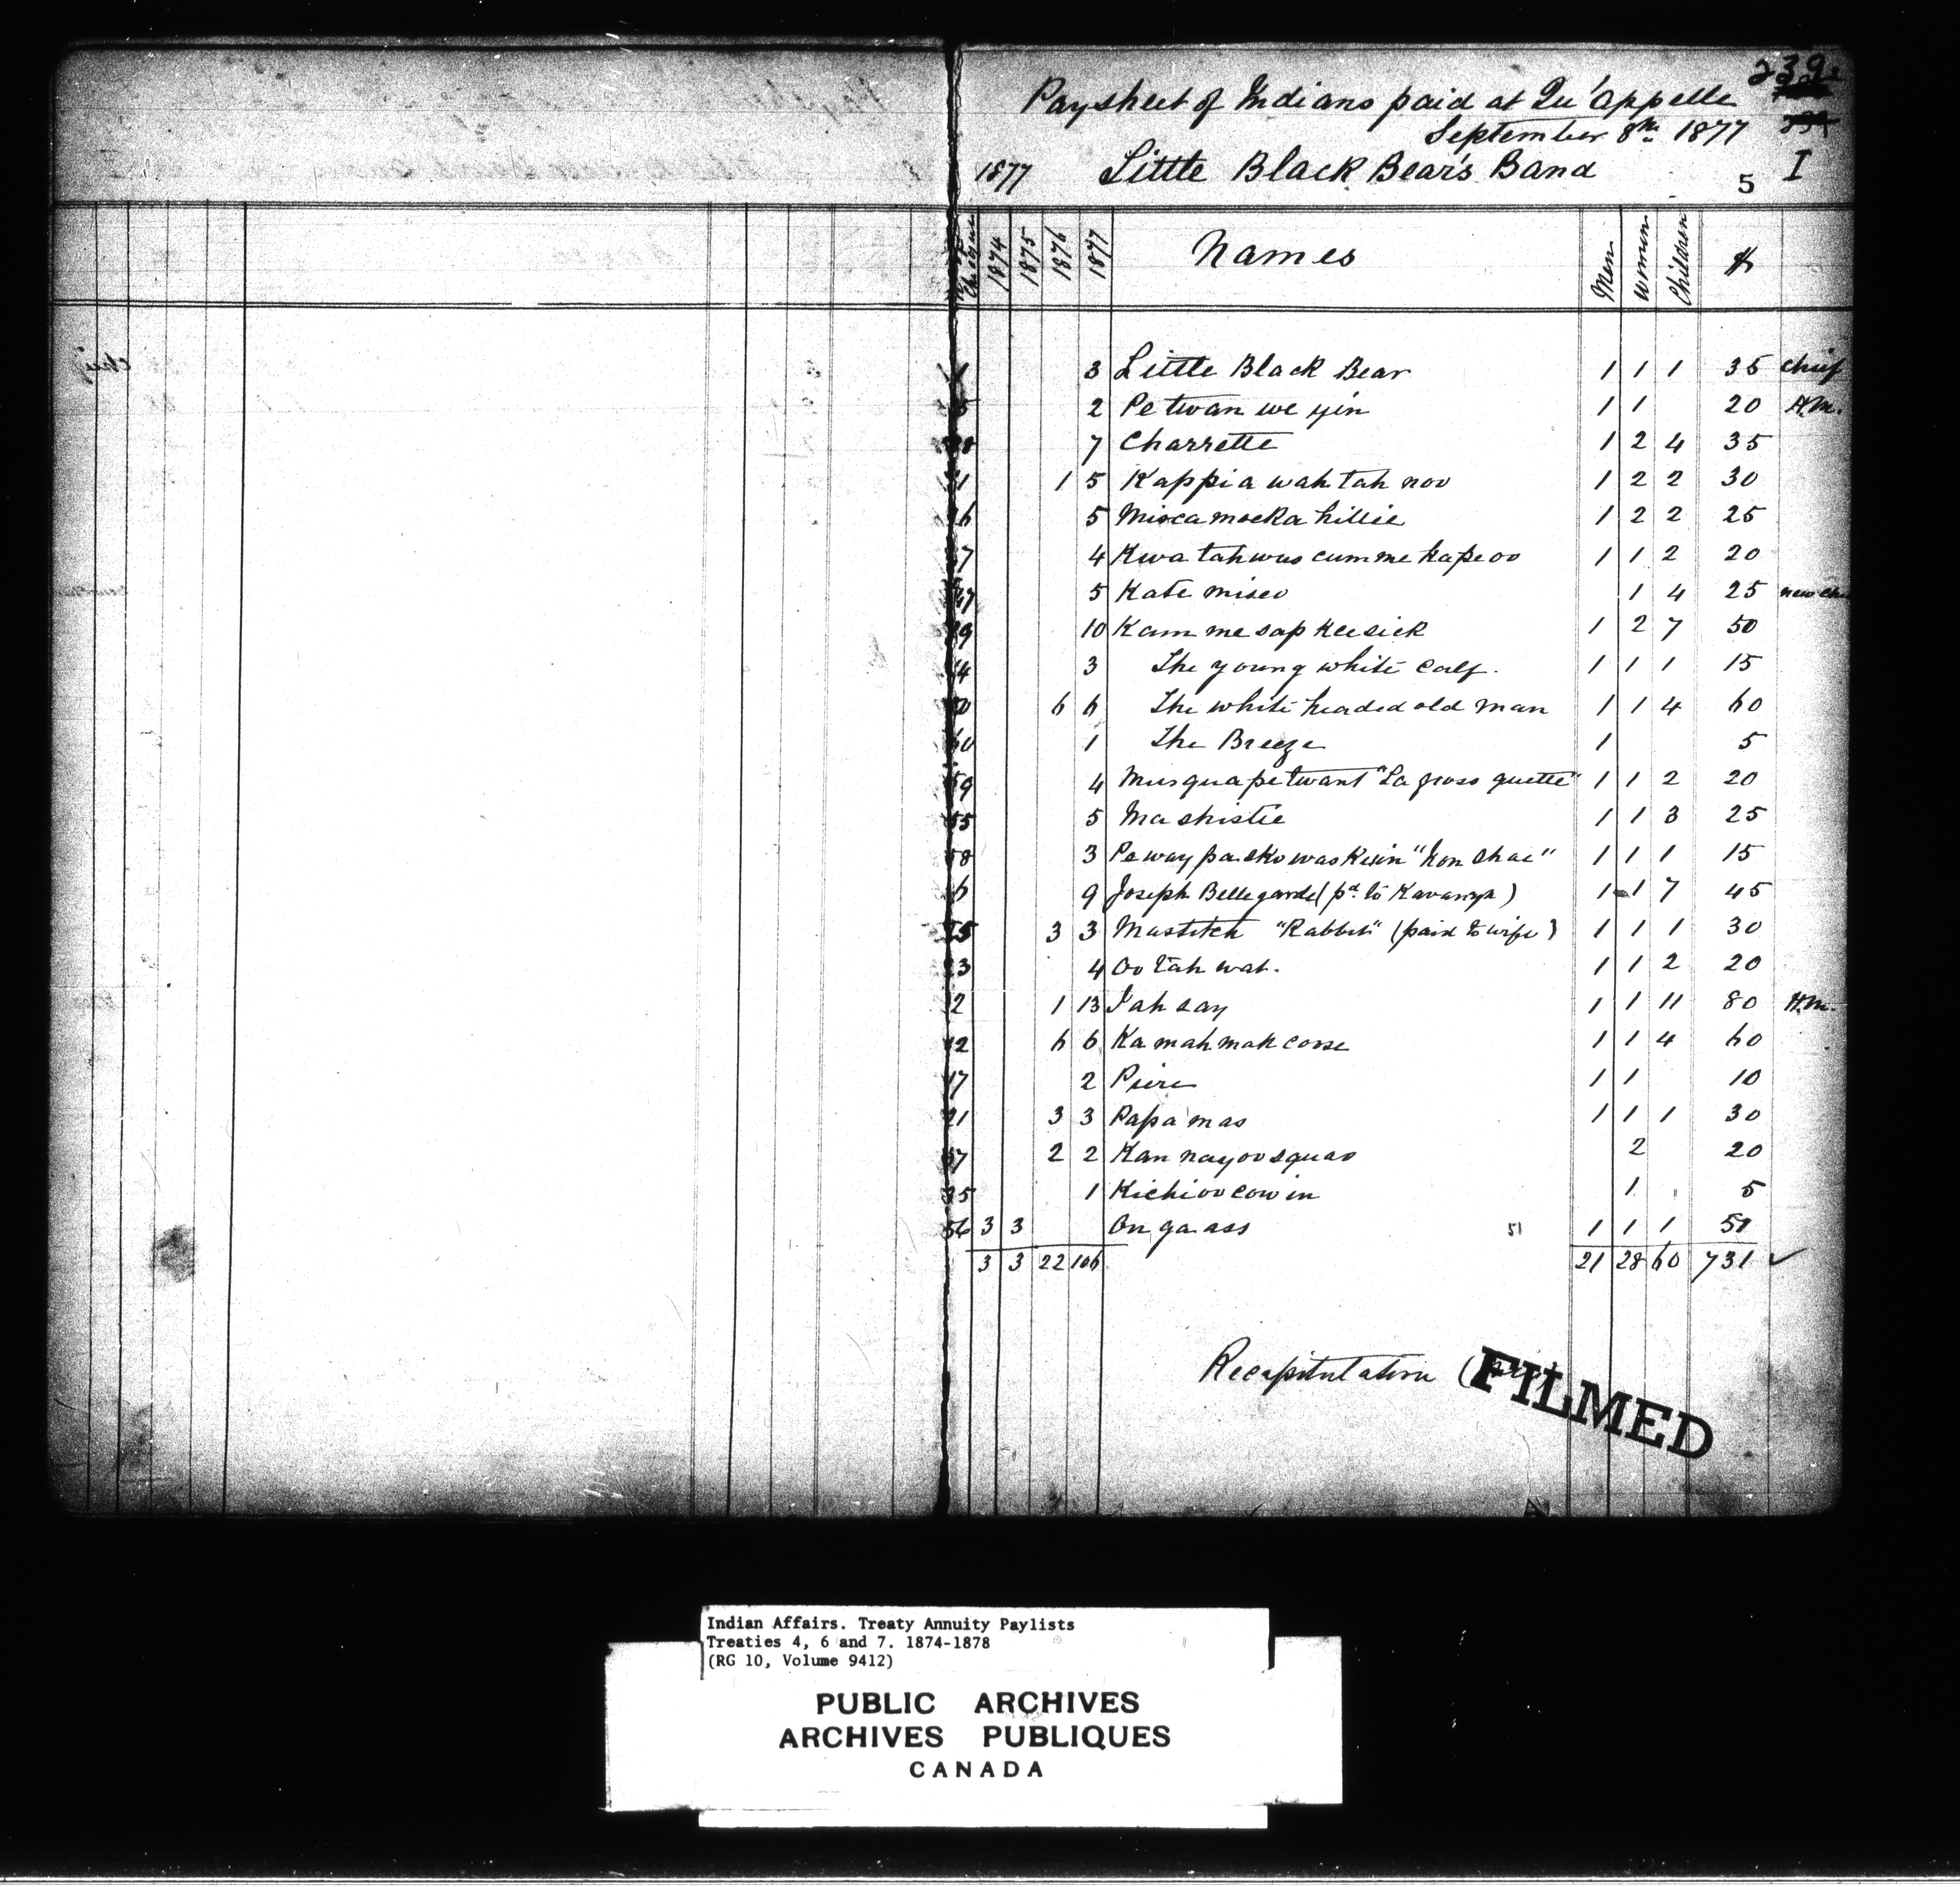 239
Paysheet of Indians paid at Qu'appelle
September 8th 1877
1877 Little Black Bear's Band 5 I
Cheque 1874 1875 1876 1877 Names Men Women Children $
3 Little Black Bear 1 1 1 35 Chief
2 Pe twan we yin 1 1 20 H.M.
7 Charrette 1 2 4 35
1 5 Kappia wah tah noo 1 2 2 30
5 Misca mocka hillie 1 2 2 25
4 Kwa tahwus cumme kapeoo 1 1 2 20
5 Kate miseo 1 4 25 new
10 Kam me sap Keesick 1 2 7 50
3 The young white calf. 1 1 1 15
6 6 The white headed old man 1 1 4 60
1 The Breeze 1 5
4 Musquapetwant "La gross quette" 1 1 2 20
5 Mashistie 1 1 3 25
3 Pewaypackowaskwin "Non Chae" 1 1 1 15
9 Joseph Bellegarde (pd. to Kavanagh) 1 1 7 45
3 3 Mastitch "Rabbit" (paid to wife) 1 1 1 30
4 Oo tah wah. 1 1 2 20
2 1 13 Jah say 1 1 11 80 H.M.
12 6 6 Ka mah mah cosse 1 1 4 60
17 2 Piere 1 1 10
21 3 3 Papa mas 1 1 1 30
2 2 Kan nayoosquao 2 20
1 Kichioocowin 1 5
56 3 3 On ga ass 51 1 1 1 51
3 3 22 106 21 28 60 731 ✓
Recapitulation (
FILMED
Indian Affairs. Treaty Annuity Paylists
Treaties 4, 6 and 7. 1874-1878
(RG 10, Volume 9412)
PUBLIC ARCHIVES
ARCHIVES PUBLIQUES
CANADA